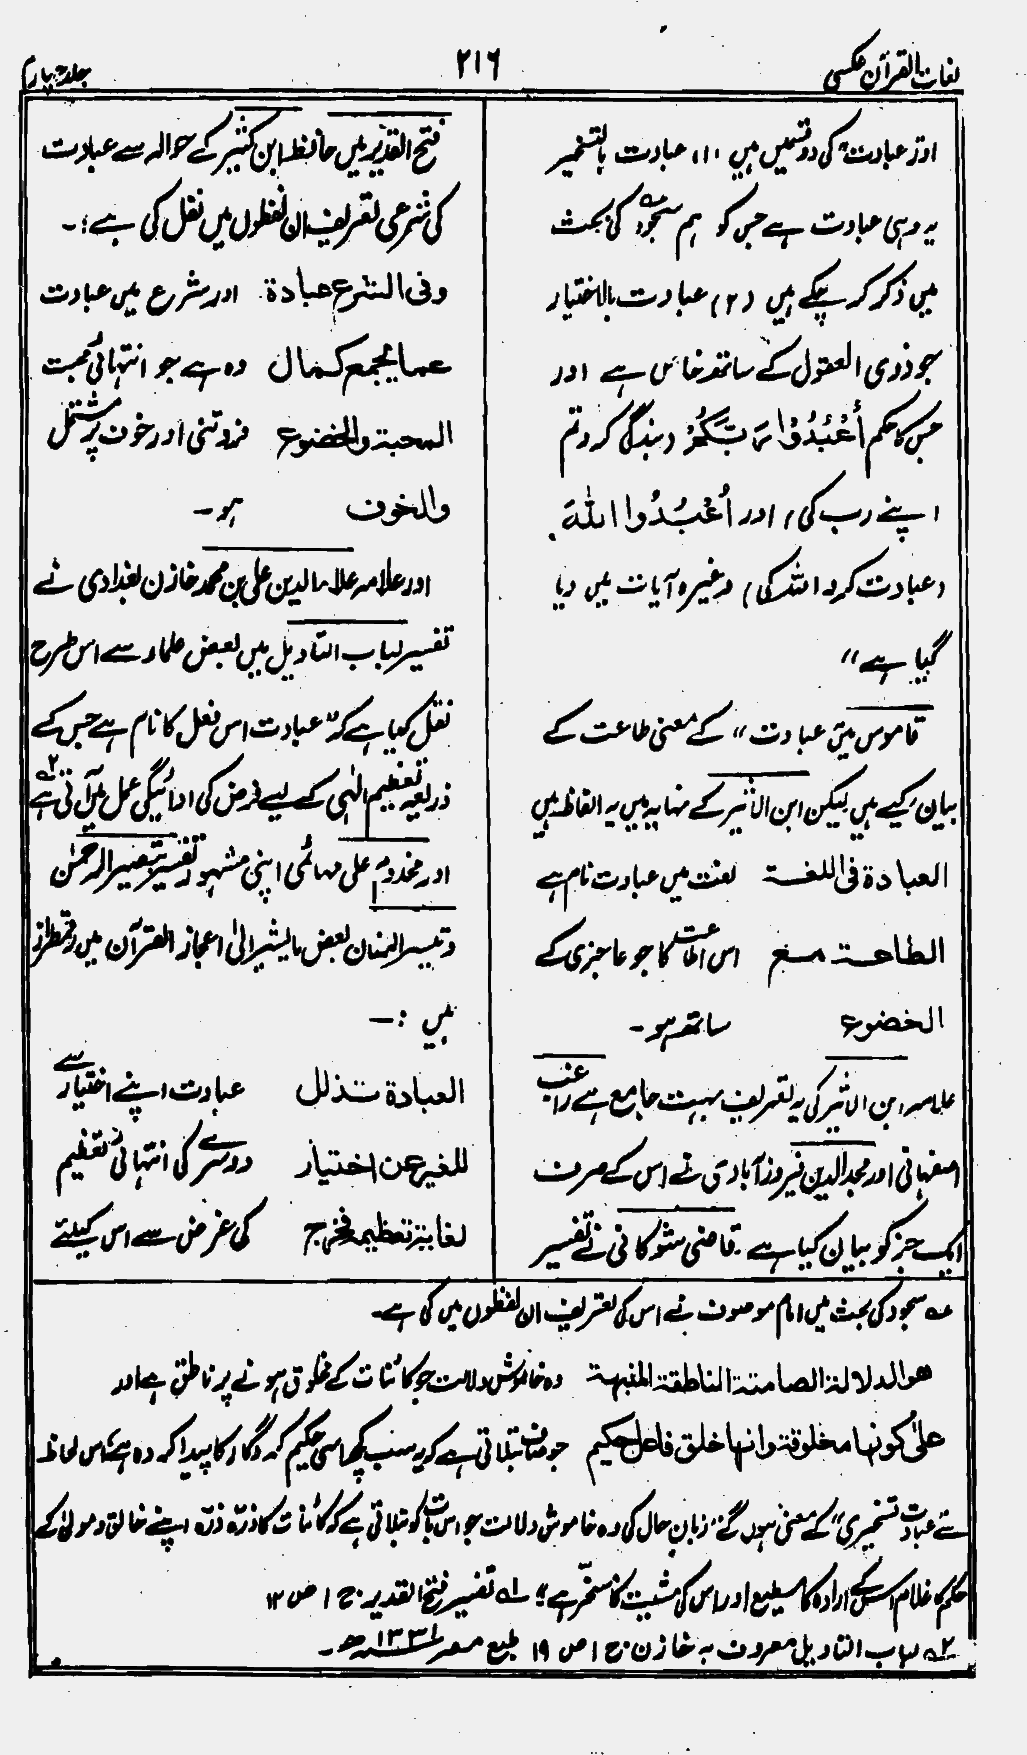 لغات القرآن عکسی
۲۱۶
جلد چہارم
اور عبادت کی دو قسمیں ہیں (۱) عبادت بالتسخیر
یہ وہی عبادت ہے جس کو ہم سجود کی بحث
میں ذکر کر چکے ہیں (۲) عبادت بالاختیار
جو ذوی العقول کے ساتھ خاص ہے اور
جس کا حکم اُعْبُدُوْا رَبَّکُمْ (بندگی کرو تم
اپنے رب کی) اور اُعْبُدُوا اللّٰہَ
(عبادت کرو اللہ کی) وغیرہ آیات میں دیا
گیا ہے"
قاموس میں عبادت" کے معنی طاعت کے
بیان کیے ہیں لیکن ابن الاثیر کے نہایہ میں یہ الفاظ ہیں
العبادۃ فی اللغۃ لغت میں عبادت نام ہے
الطاعۃ مع اس اطاعت کا جو عاجزی کے
الخضوع ساتھ ہو۔
علامہ ابن الاثیر کی یہ تعریف بہت جامع ہے راغب
اصفہانی اور مجد الدین فیروز آبادی نے اس کے صرف
ایک جز کو بیان کیا ہے۔ قاضی شوکانی نے تفسیر
فتح القدیر میں حافظ ابن کثیر کے حوالہ سے عبادت
کی شرعی تعریف ان لفظوں میں نقل کی ہے:۔
وفی الشرع عبادۃ اور شرع میں عبادت
عما یجمع کمال وہ ہے جو انتہائی محبت
المحبۃ والخضوع فروتنی اور خوف پر مشتمل
والخوف ہو۔
اور علامہ علاء الدین علی بن محمد خازن بغدادی نے
تفسیر لباب التاویل میں بعض علماء سے اس طرح
نقل کیا ہے کہ "عبادت اس فعل کا نام ہے جس کے
ذریعہ تعظیم الٰہی کے لیے فرض کی ادائیگی عمل میں آتی ہے ۲؎
اور مخدوم علی مہائمی اپنی مشہور تفسیر تبصیر الرحمٰن
و تیسیر المنان بعض ما یشیر الیٰ اعجاز القرآن میں رقمطراز
ہیں :۔
العبادۃ تذلل عبادت اپنے اختیار سے
للغیر عن اختیار دوسرے کی انتہائی تعظیم
لغایۃ تعظیمہ فخرج کی غرض سے اس کیلئے
عہ سجود کی بحث میں امام موصوف نے اس کی تعریف ان لفظوں میں کی ہے۔
ھو الدلالۃ الصامتۃ الناطقۃ المنبھۃ وہ خاموش دلالت جو کائنات کے مخلوق ہونے پر ناطق ہے اور
علیٰ کونھا مخلوقۃ وانھا خلق فاعل حکیم جو صاف بتلاتی ہے کہ یہ سب کچھ اسی حکیم کردگار کا پیدا کردہ ہے، اس لحاظ
سے عبادت تسخیری" کے معنی ہوں گے "زبانِ حال کی وہ خاموش دلالت جو اس بات کو بتلاتی ہے کہ کائنات کا ذرّہ ذرّہ اپنے خالق و مولیٰ کے
حکم کا غلام اس کے ارادہ کا مطیع اور اس کی مشیت کا مسخّر ہے" ۱؎ تفسیر فتح القدیر۔ ج ۱ ص ۱۲
۲؎ لباب التاویل معروف بہ خازن ج ۱ ص ۱۹ طبع مصر ۱۳۳۱ھ۔